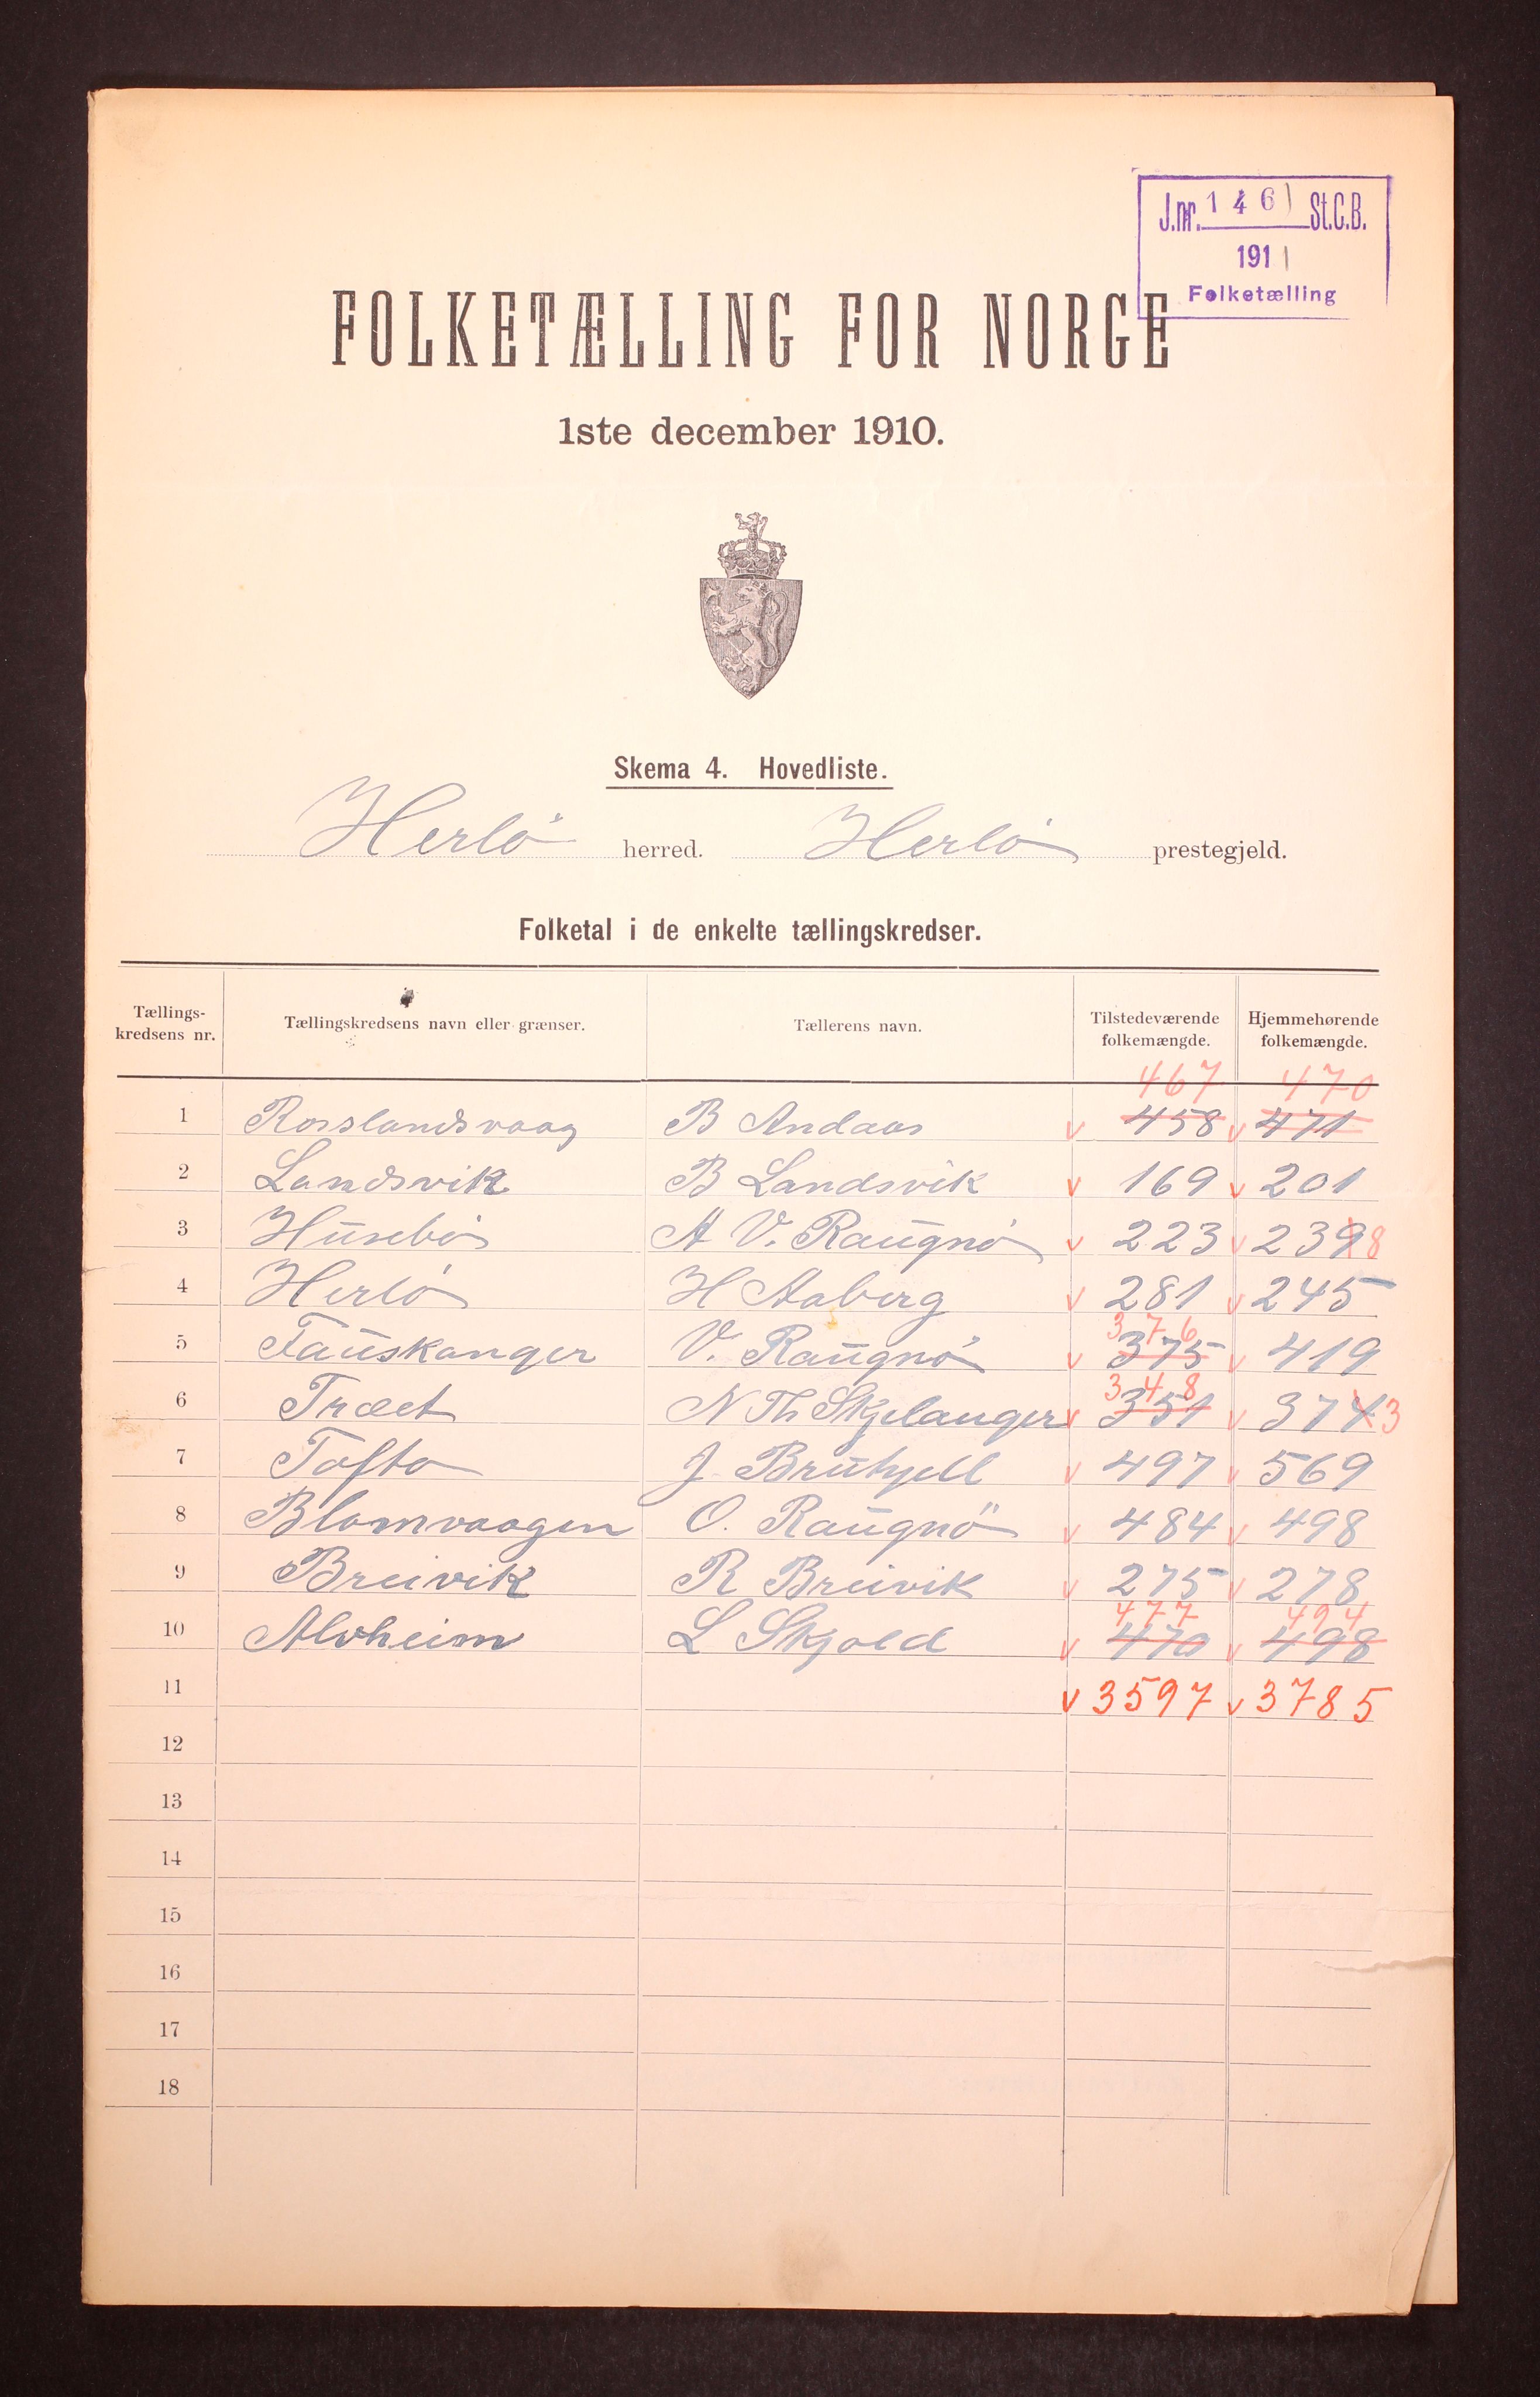 J.nr. 1461 St.C.B.
1911
Folketælling
FOLKETÆLLING FOR NORGE
1ste december 1910.
Skema 4. Hovedliste.
Herlö herred. Herlö prestegjeld.
Folketal i de enkelte tællingskredser.
Tællings-kredsens nr. Tællingskredsens navn eller grænser. Tællerens navn. Tilstedeværende folkemængde. Hjemmehørende folkemængde.
467 470
1 Rosslandsvaag B Andaas v 458 v 471
2 Landsvik B Landsvik v 169 v 201
3 Husebö A V. Raugnö v 223 v 239 8
4 Herlö H Aaberg v 281 v 245
376
5 Fauskanger V. Raugnö v 375 v 419
348
6 Træet N Th Skjelanger v 351 v 374 3
7 Tofta J Brutjell v 497 v 569
8 Blomvaagen O. Raugnö v 484 v 498
9 Breivik R Breivik v 275 v 278
477 494
10 Alvheim L Skjold v 470 v 498
11 v 3597 v 3785
12
13
14
15
16
17
18